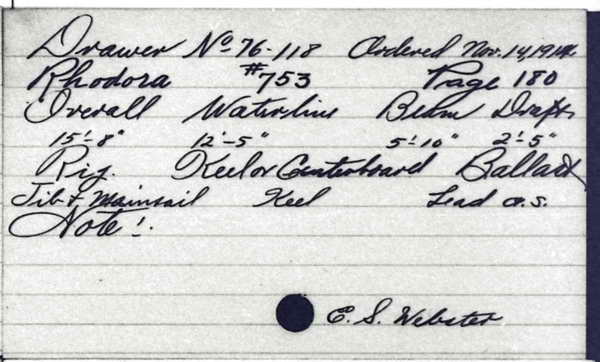 Drawer No 76-118 Ordered Nov. 14, 1914
Rhodora #753 Page 180
Overall Waterline Beam Draft
15'-8" 12'-5" 5'-10" 2'-5"
Rig. Keel or Centerboard Ballast
Jib & Mainsail Keel Lead o.s.
Note!.
E. S. Webster